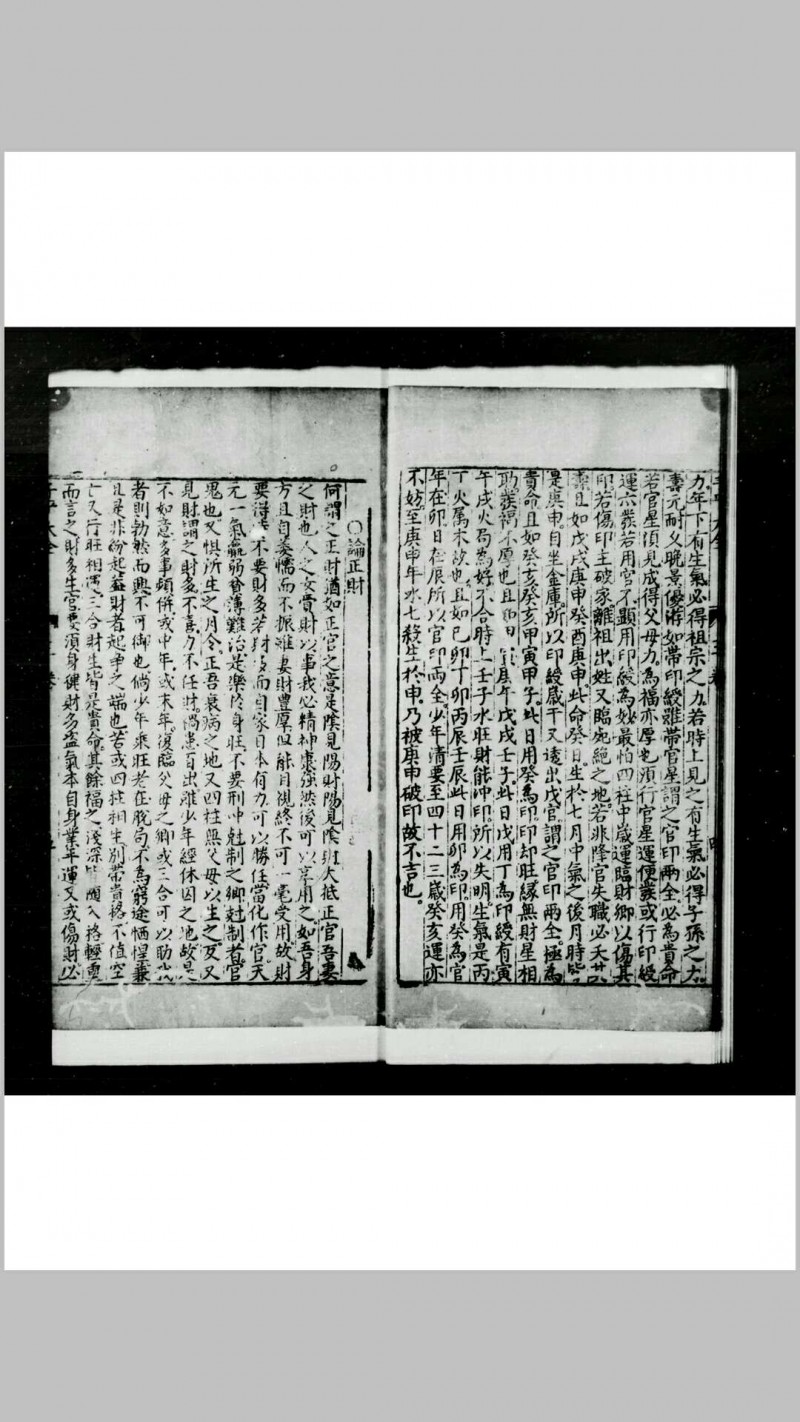 力年下有生氣必得祖宗之力若時上見之有生氣必得子孫之力
壽元耐久晚景優游如帶印綬雖帶官星謂之官印兩全必為貴命
若官星須見成得父母力為福亦厚也須行官星運便發或行印綬
運亦發若用官不顯用印綬為妙最怕四柱中歲運臨財鄉以傷其
印若傷印主破家離祖出姓又臨死絕之地若非降官失職必夭其
壽且如戊戌庚申癸酉庚申此命癸日生於七月中氣之後月時皆
是庚申自坐金庫所以印綬歲干又透出戊官謂之官印兩全極為
貴命且如癸亥癸亥甲寅甲子此日用癸為印印却旺緣無財星相
助發福不厚也且如 寅庚午戊戌壬子此日戊用丁為印綬有寅
午戌火局為好不合時上壬子水旺財能冲印所以失明生氣是丙
丁火屬木故也且如己卯丁卯丙辰壬辰此日用卯為印用癸為官
年在卯日在辰所以官印兩全少年清要至四十二三歲癸亥運亦
不妨至庚申年水七殺生於申乃被庚申破印故不吉也
○論正財
何謂之正財猶如正官之意是陰見陽財陽見陰財大抵正官吾妻
之財也人之女賫財以事我必精神康強然後可以享用之如吾身
方且自萎懦而不振雖妻財豐厚但能目視終不可一毫受用故財
要得時不要財多若財多而自家日本有力可以勝任當化作官天
元一氣羸弱貧薄難治是樂於身旺不要刑冲尅制之鄉尅制者官
鬼也又懼所生之月令正吾衰病之地又四柱無父母以生之反又
見財謂之財多不喜力不任財禍患百出雖少年經休囚之地故是
不如意多事頻併或中年或末年復臨父母之鄉或三合可以助我
者則勃然而興不可御也倘少年乘旺老在脫局不為窮途悽惶兼
且是非紛起蓋財者起爭之端也若或四柱相生別帶貴格不值空
亡又行旺相運三合財生皆是貴命其餘福之淺深皆隨入格輕重
而言之財多生官要須身健財多盜氣本自身柔年運又或傷財必